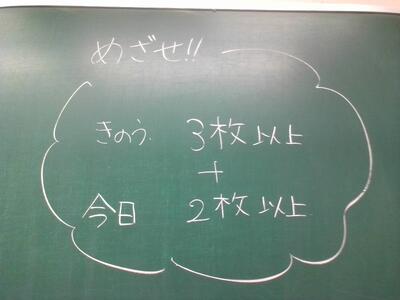 めざせ!!
きのう 3枚以上
+
今日 2枚以上